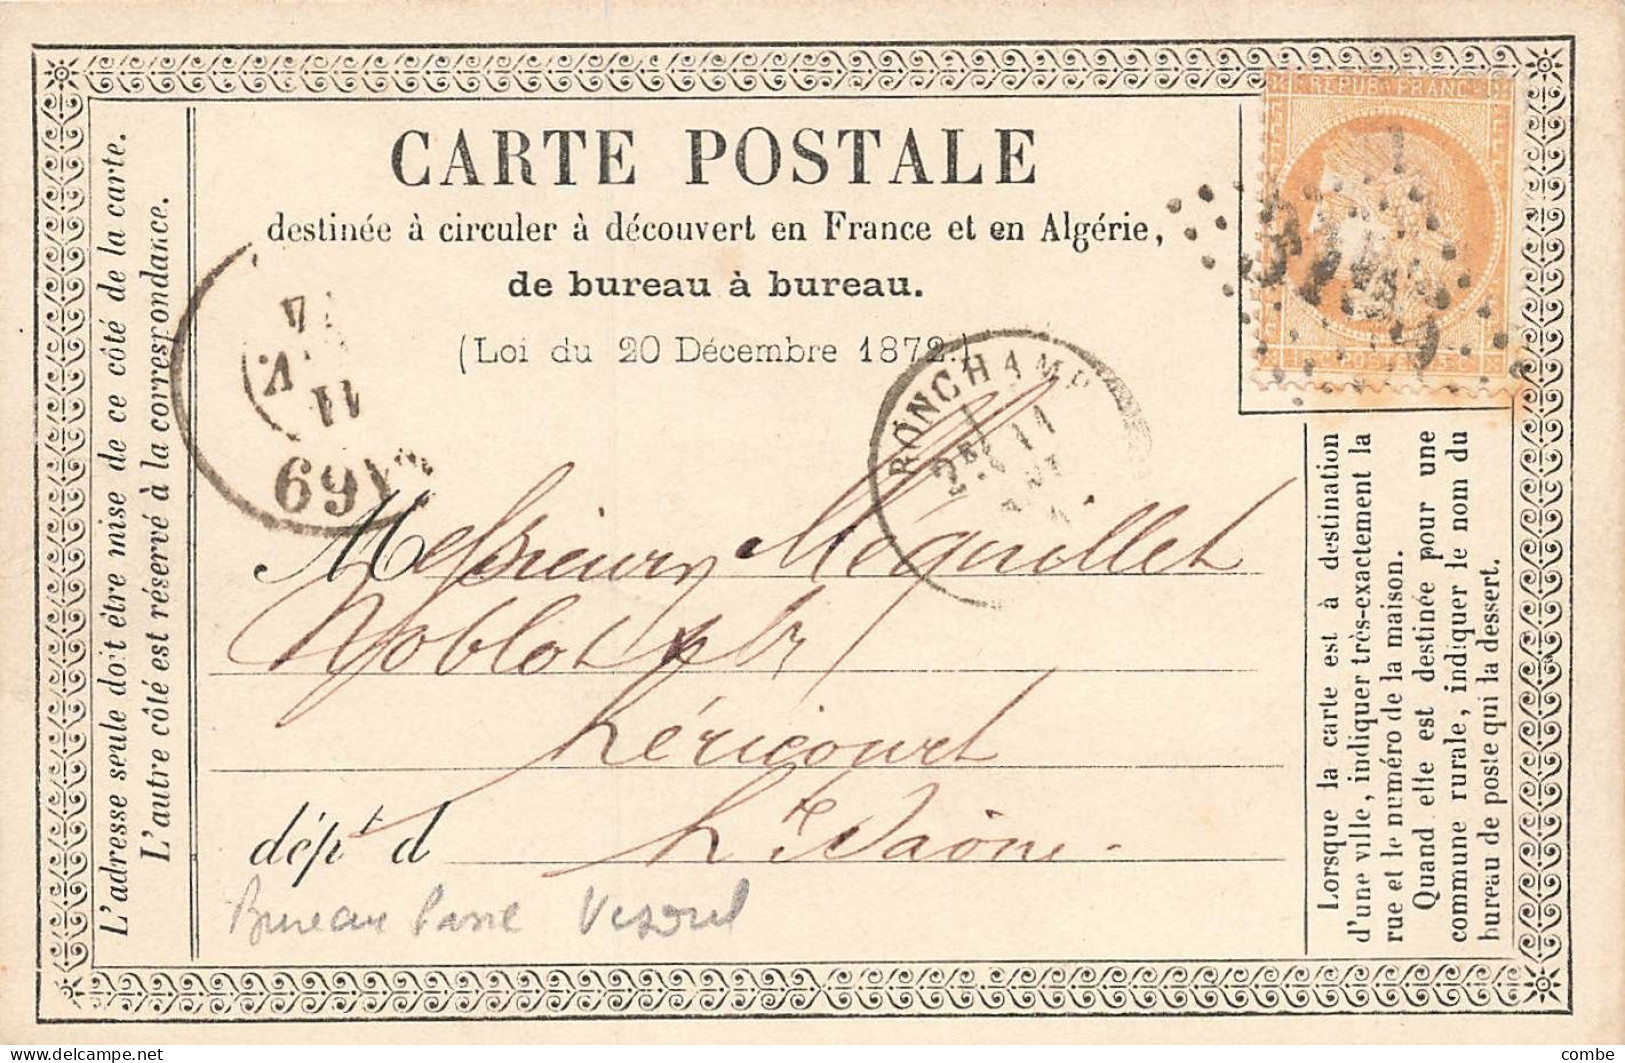 CARTE POSTALE
destinée à circuler à découvert en France et en Algérie,
de bureau à bureau.
(Loi du 20 Décembre 1872.)
REPUB FRANC
RONCHAMP
2E 11
11
69
Messieurs Méquillet
Noblot
héricourt
dépt d hte Saône.
Bureau Passe Vesoul
L'adresse seule doit être mise de ce côté de la carte.
L'autre côté est réservé à la correspondance.
Lorsque la carte est à destination
d'une ville, indiquer très-exactement la
rue et le numéro de la maison.
Quand elle est destinée pour une
commune rurale, indiquer le nom du
bureau de poste qui la dessert.
www.delcampe.net
combe